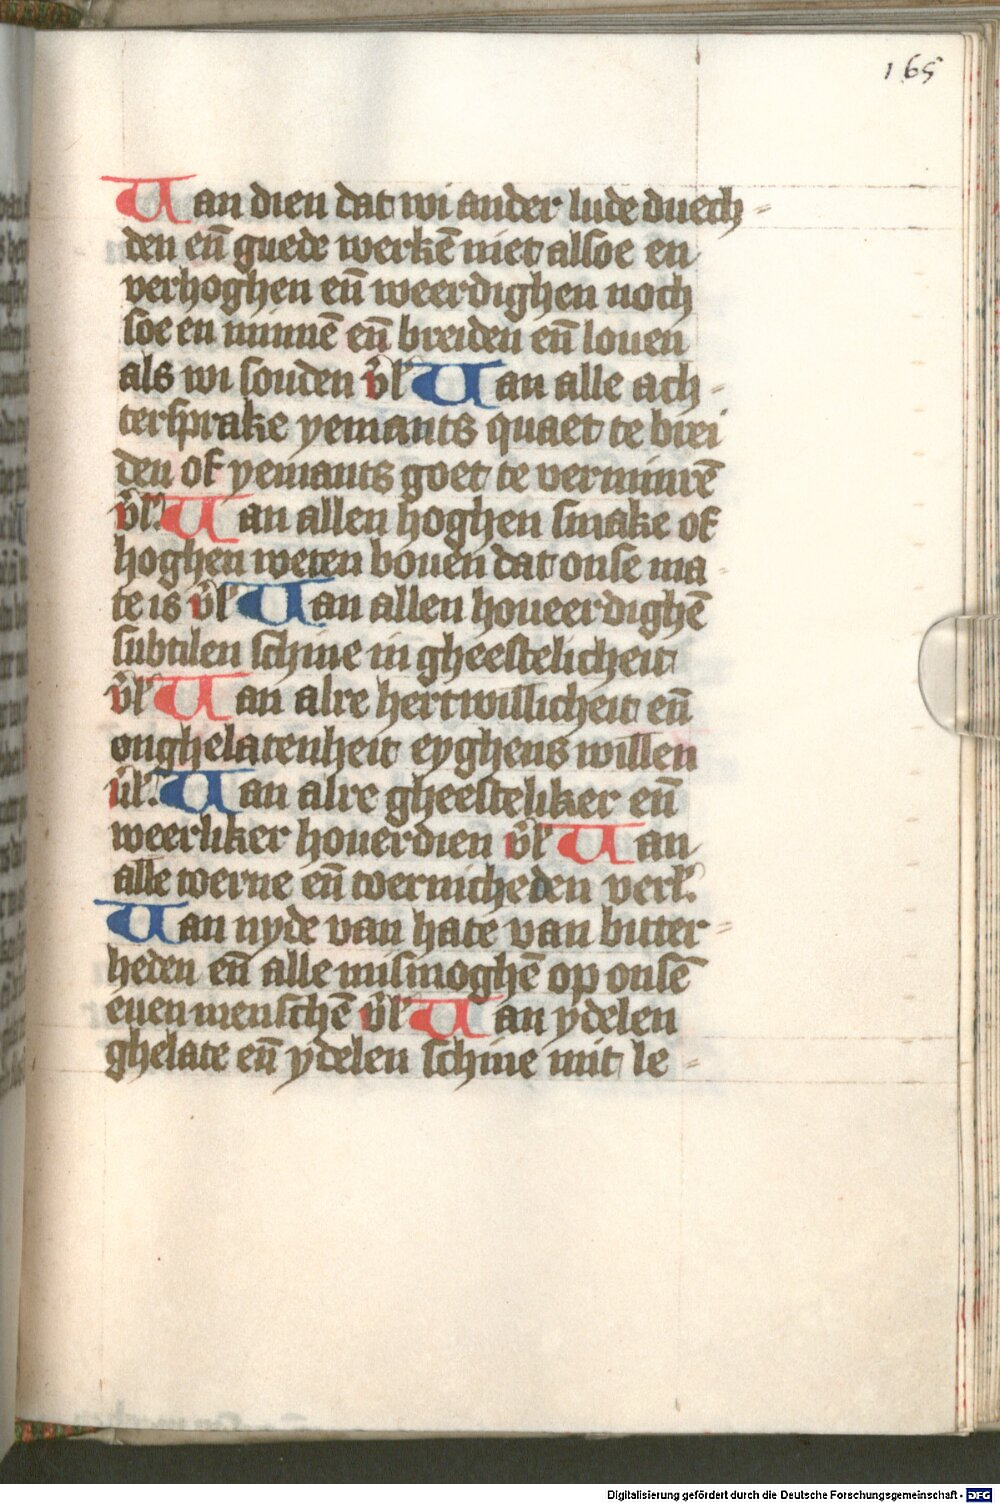 165
Van dien dat wi ander lude duech=
den eñ guede werkē niet alsoe en
verhoghen eñ weerdighen noch
soe en minnē eñ breiden eñ louen
als wi souden v̄l Van alle ach-
tersprake yemants quaet te brei
den of yemants goet te verminrē
v̄l. Van allen hoghen smake of
hoghen weten bouen dat onse ma-
te is v̄l Van allen houeerdighē
subtilen schine in gheestelicheit
v̄l Van alre hertwillicheit eñ
onghelatenheit eyghens willen
v̄l. Van alre gheesteliker eñ
weerliker houerdien v̄l Van
alle toerne eñ toernicheden verl.
Van nyde van hate van bitter=
heden eñ alle mismoghē op onsē
euen menschē v̄l Van ydelen
ghelate eñ ydelen schine mit le=
Digitalisierung gefördert durch die Deutsche Forschungsgemeinschaft - DFG